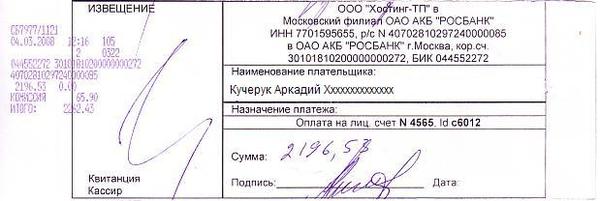 ИЗВЕЩЕНИЕ
СБ7977/1121
04.03.2008 12:16 105
2 0322
044552272 30101810200000000272
40702810297240000085
2196.53 0.00
КОМИССИЯ 65.90
ИТОГО: 2262.43
Квитанция
Кассир
ООО "Хостинг-ТП" в
Московский филиал ОАО АКБ "РОСБАНК"
ИНН 7701595655, р/с N 40702810297240000085
в ОАО АКБ "РОСБАНК" г.Москва, кор.сч.
30101810200000000272, БИК 044552272
Наименование плательщика:
Кучерук Аркадий Xxxxxxxxxxxxxx
Назначение платежа:
Оплата на лиц. счет N 4565, Id c6012
Сумма: 2196,53
Подпись: Дата: